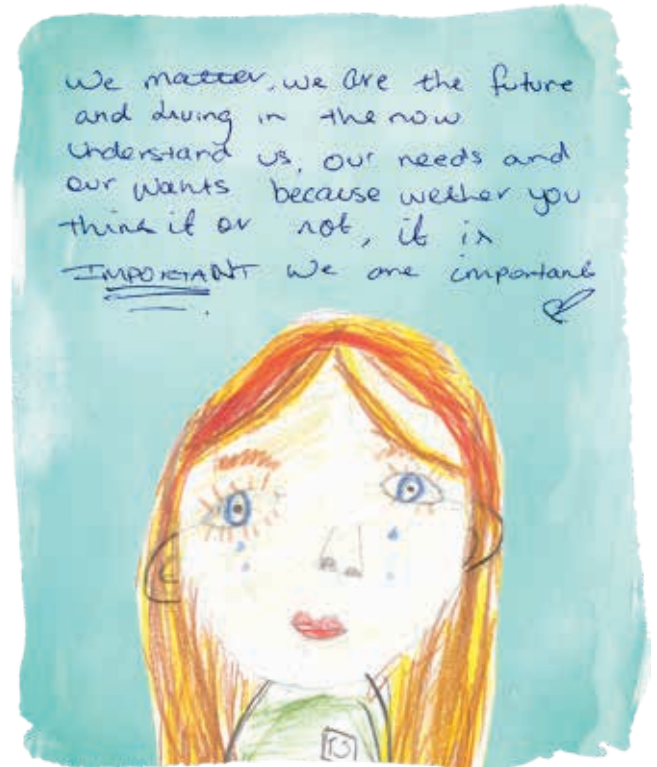 We matter, we are the future
and living in the now
understand us, our needs and
our wants because wether you
think it or not, it is
IMPORTANT We are important